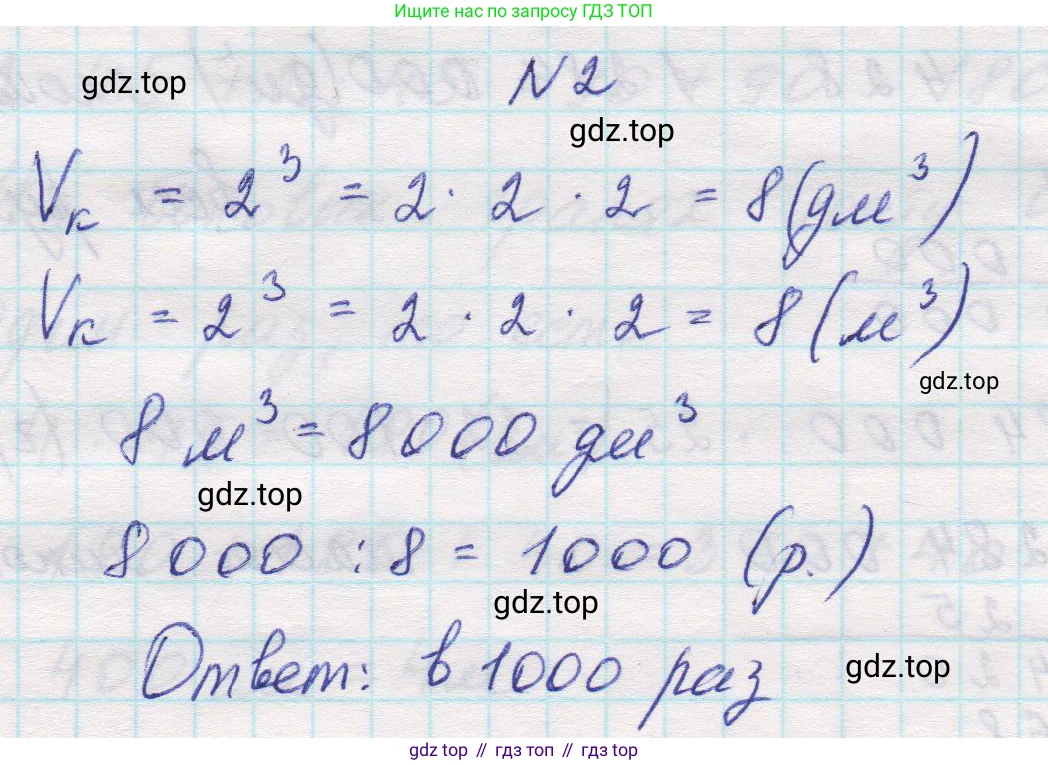 Ищите нас по запросу ГДЗ ТОП
gdz.top
N 2
gdz.top
Vк = 2³ = 2 · 2 · 2 = 8 (дм³)
Vк = 2³ = 2 · 2 · 2 = 8 (м³)
gdz.top
8 м³ = 8000 дм³
gdz.top
8000 : 8 = 1000 (р.)
gdz.top
Ответ: в 1000 раз
gdz.top
gdz top // гдз топ // gdz top